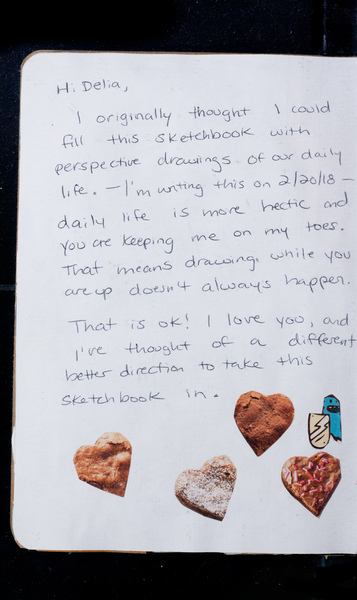 Hi Delia,
I originally thought I could
fill this sketchbook with
perspective drawings of our daily
life. — I'm writing this on 2/20/18 —
daily life is more hectic and
you are keeping me on my toes.
That means drawing, while you
are up doesn't always happen.
That is ok! I love you, and
I've thought of a different
better direction to take this
sketchbook in.